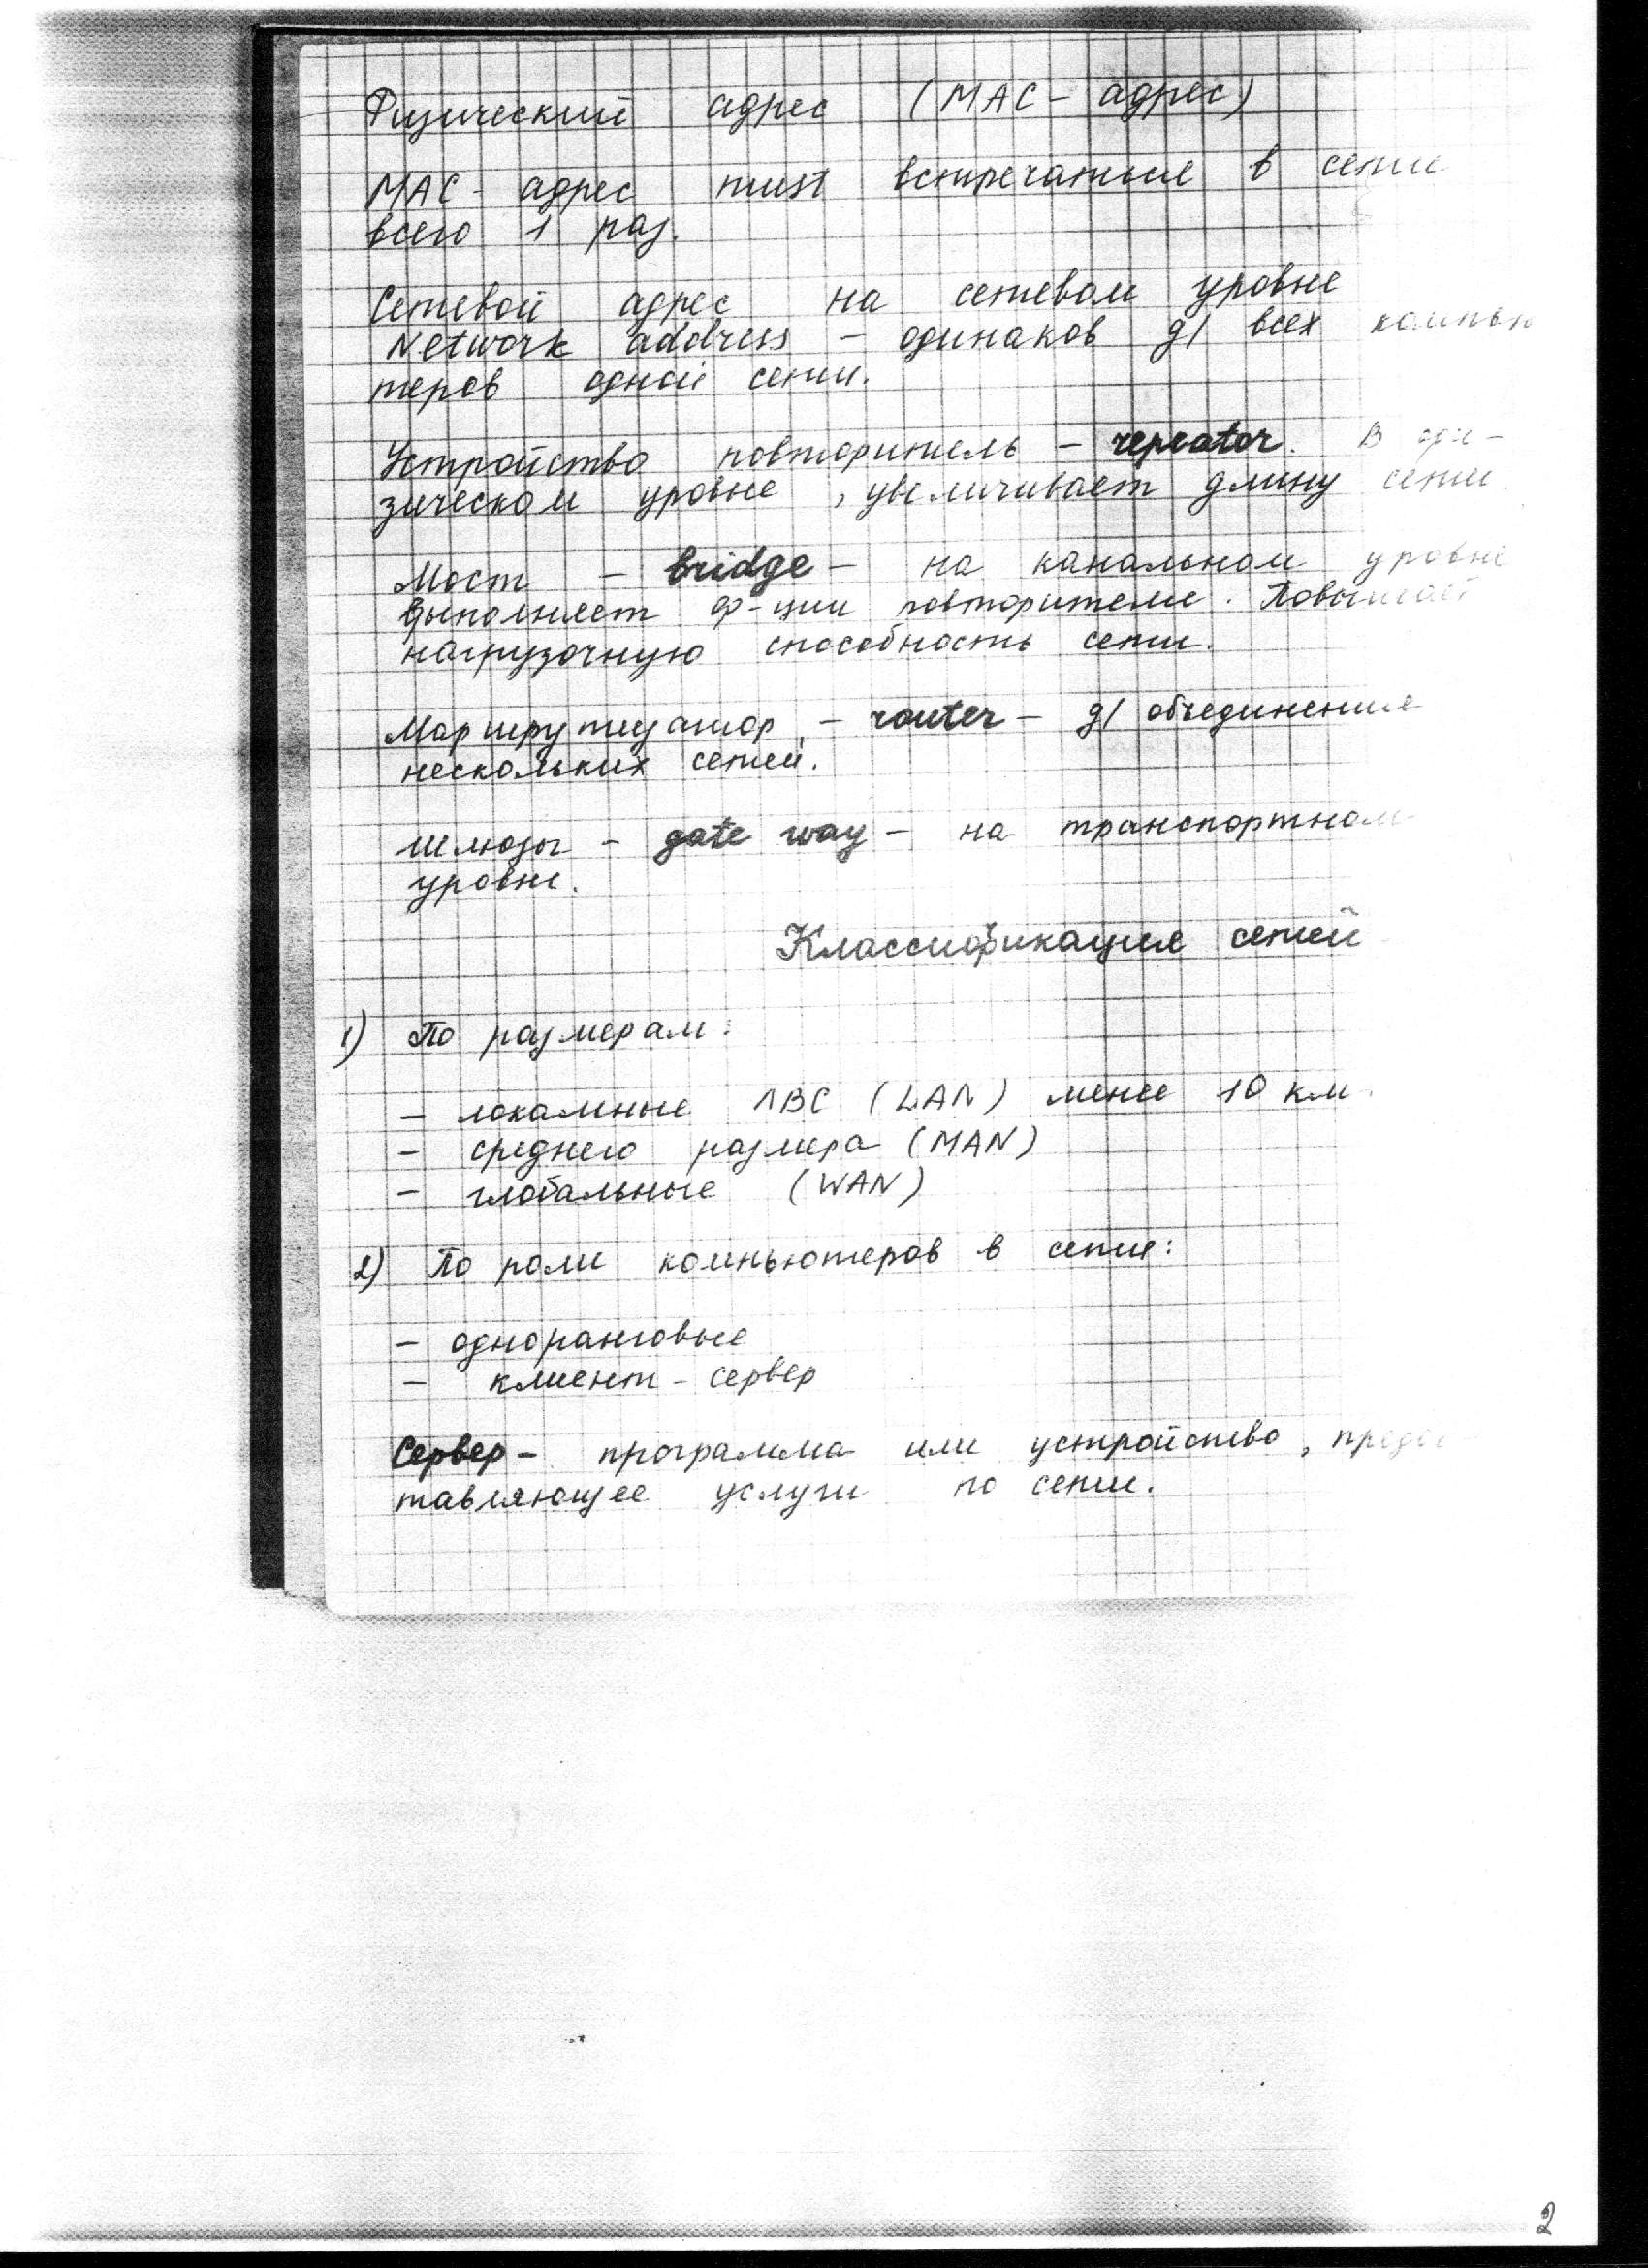 Физический адрес (MAC-адрес)
MAC-адрес must встречаться в сети
всего 1 раз.
Сетевой адрес на сетевом уровне
Network address - одинаков д/ всех компью
теров одной сети.
Устройство повторитель - repeator. В фи-
зическом уровне, увеличивает длину сети.
Мост - bridge - на канальном уровне
выполняет ф-ции повторителя. Повышает
нагрузочную способность сети.
Маршрутизатор - router - д/ объединения
нескольких сетей.
Шлюзы - gate way - на транспортном
уровне.
Классификация сетей
1) По размерам:
- локальные ЛВС (LAN) менее 10 км.
- среднего размера (MAN)
- глобальные (WAN)
2) По роли компьютеров в сети:
- одноранговые
- клиент-сервер
Сервер - программа или устройство, предос
тавляющее услуги по сети.
2